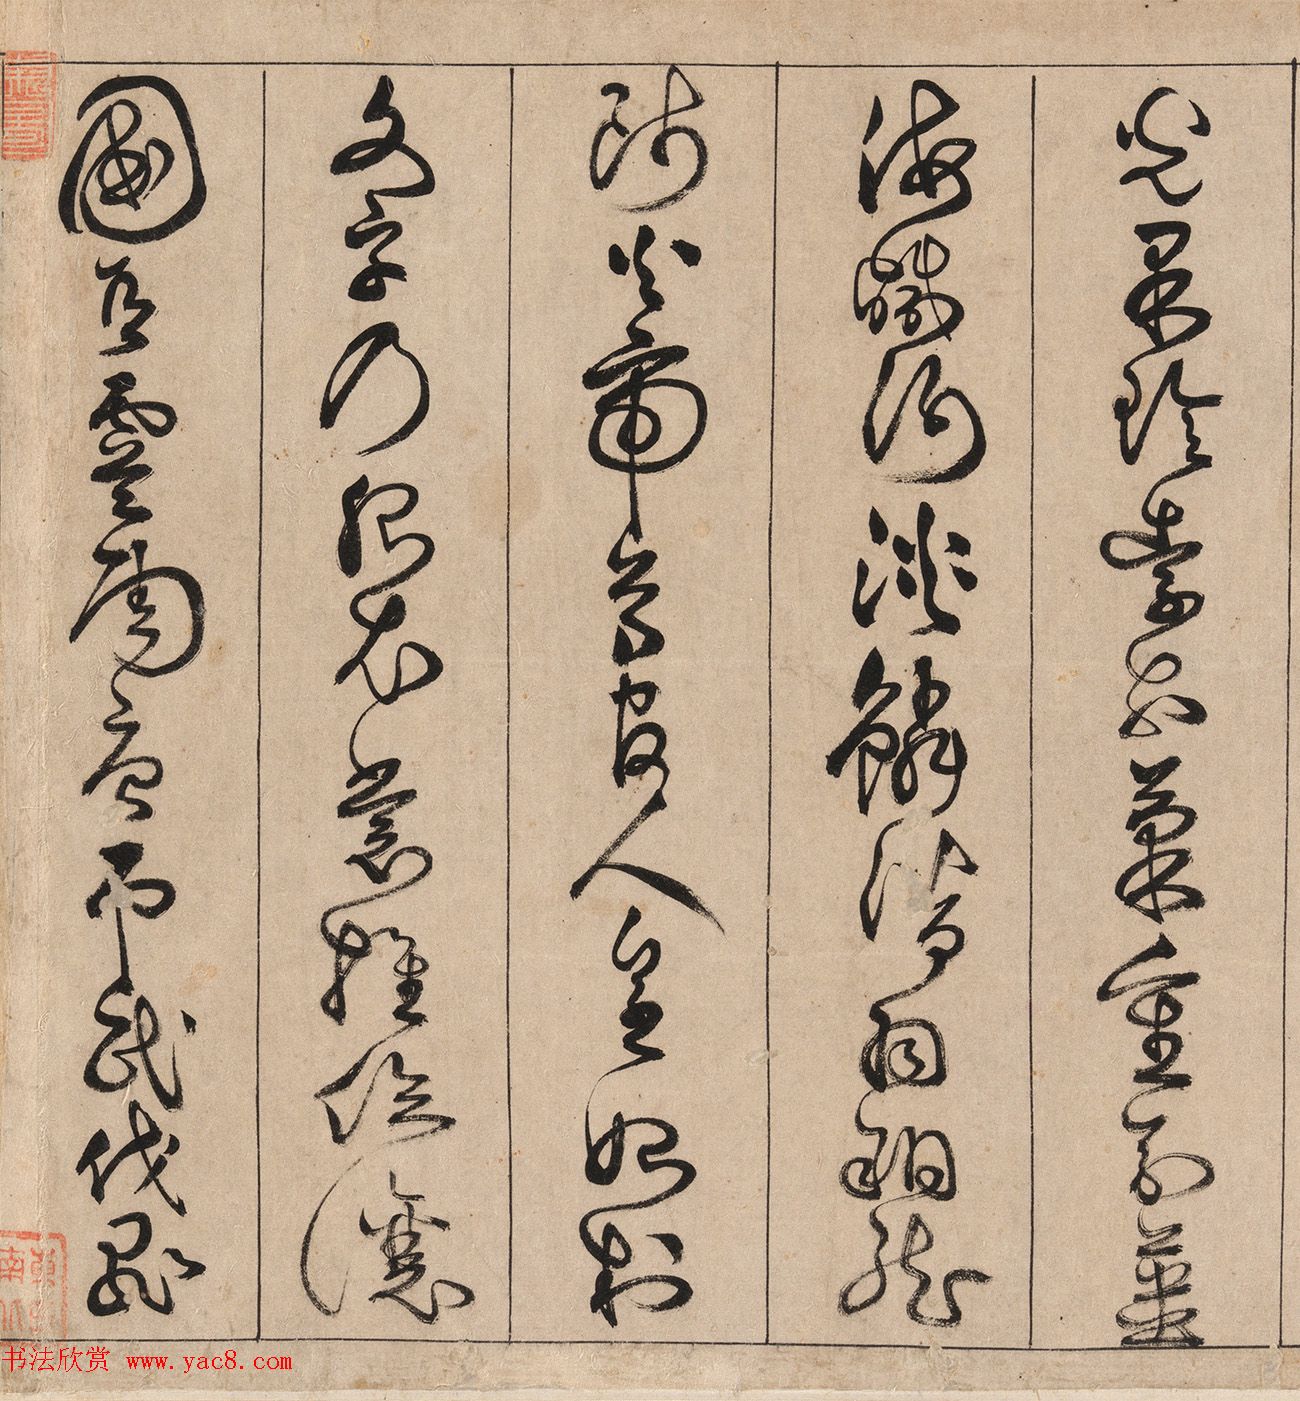 光果珍李柰菜重芥薑
海鹹河淡鱗潛羽翔龍
師火帝鳥官人皇始制
文字乃服衣裳推位讓
國有虞陶唐弔民伐罪
书法欣赏 www.yac8.com